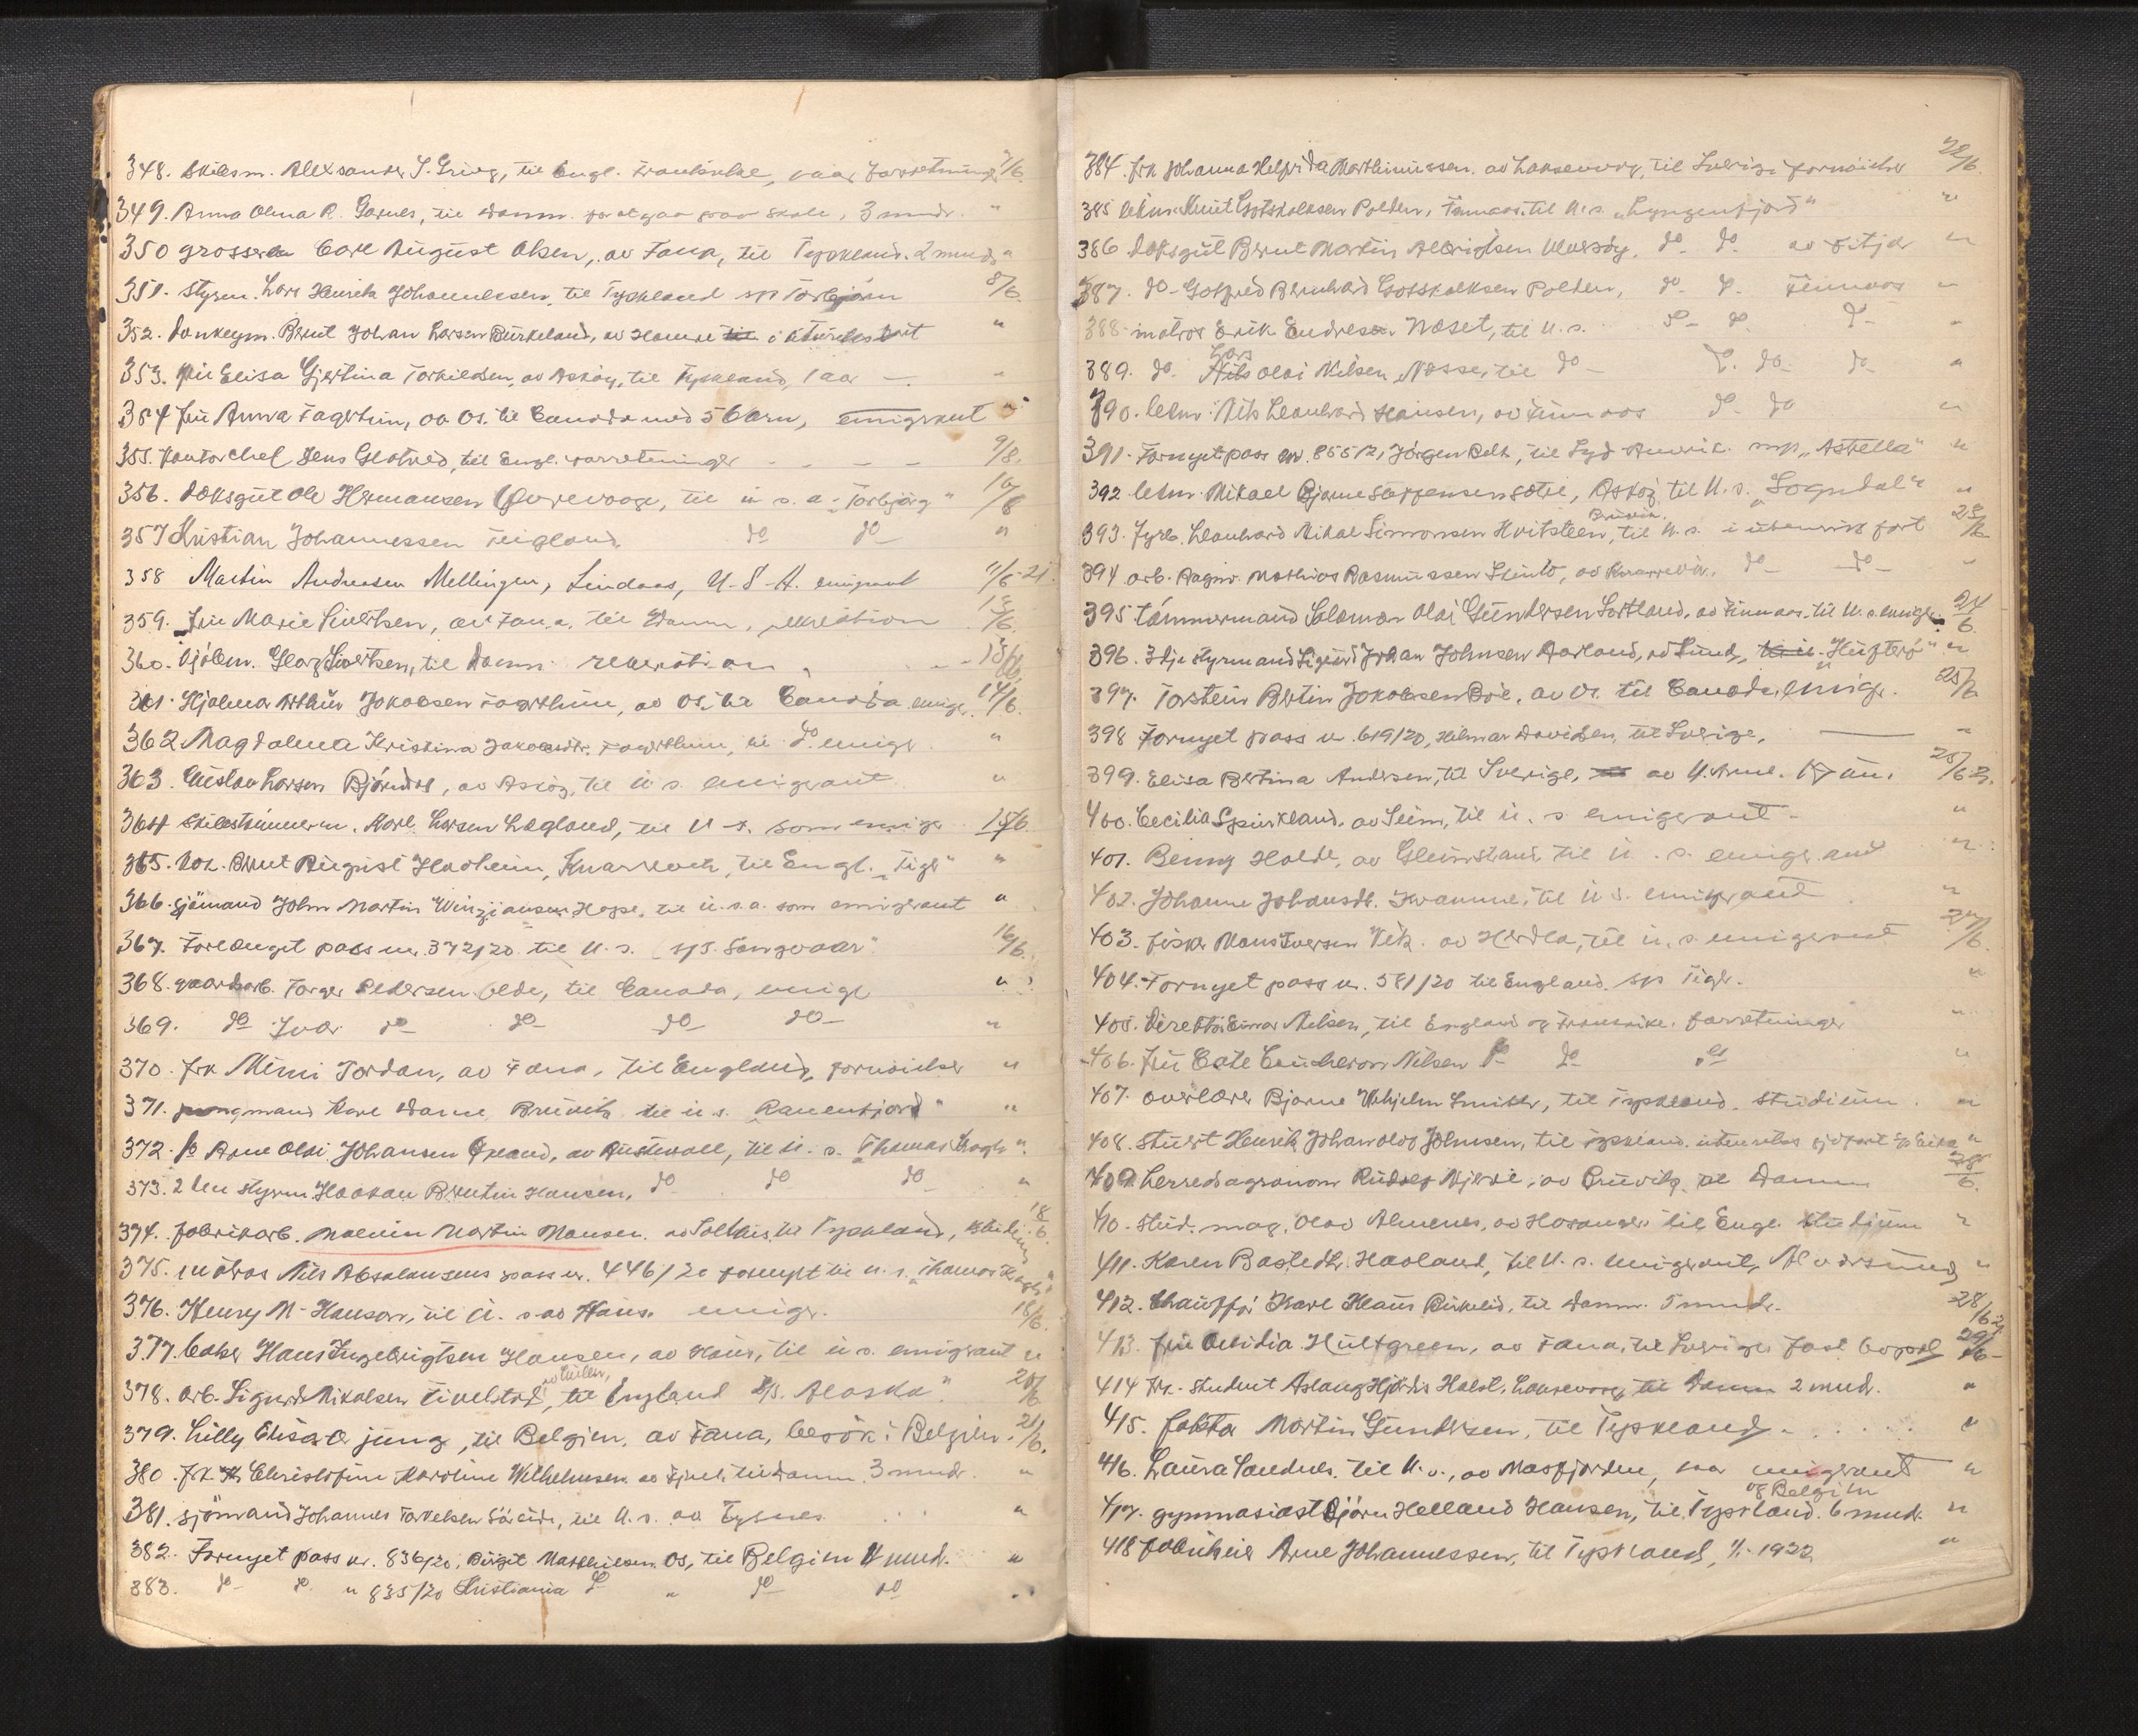 348. Skibsm. Alexsander S. Grieg, til Engl. Frankrike, forretninger 7/6.
349. Anna Olina R. Garnes, til Danm. for at gaa paa skole, 3 mndr. "
350 grosserer Carl August Olsen, av Fana, til Tyskland. 2 mndr. "
351. styrm. Lars Henrik Johannesen, til Tyskland s/s Torbjørn 8/6
352. Donkeym. Bernt Johan Larsen Birkeland, av Hamre i utenriksfart "
353. fru Elisa Gjertina Torkildsen, av Askøy, til Tyskland, 1 aar — "
354 fru Anna Fagerhim, av Os. til Canada med 5 barn, emigrant "
355. Kontorchef Jens til Engl. forretninger - - - - 9/6.
356. Dæksgut Ole Hermansen til u. s. a. "Torbjørg" 10/6
357 Kristian Johannessen Teigland do do "
358 Martin Andreasen Mellingen, Lindaas, U-S-A. emigrant 11/6-21.
359. Fru Marie Sivertsen, av Fana, til Danm, rekreation 13/6.
360. Georg Sivertsen, til Danm. rekreation 13/6.
361. Hjalmar Arthur Jakobsen Fagerthun, av Os. til Canada emigr. 14/6.
362 Magdalena Kristina Jakobsdtr. Fagerthun, til do. emigr. "
363. Gustav Larsen Bjørndal, av Askøy, til u. s. emigrant "
364 skibstømmerm. Karl Larsen Løgland, til U. s. som emigr 15/6.
365. Bernt August Haaheim, Knarrevik, til Engl. "Tiger" "
366. sjømand John Martin Hope, til u. s. a. som emigrant "
367. Forlænget pass nr. 372/20 til U. s. s/s. Songvaar" 16/6.
368. gaardsarb. Torger Pedersen til Canada, emigr "
369. do Ivar do- do- do- do- "
370. frk Mimi Jordan, av Fana, til England, fornøielser "
371. jungmand Karl Bruvik til u. s. "Ranenfjord" "
372. do Arne Olai Johansen av Austevoll, til U. s. "Thomas Krogh" "
373. 2den styrm Haakon Berntin Hansen, do do do "
374. fabrikarb. Martin Monsen. til Tyskland, studium 18/6.
375. matros Nils Absalonsens pass nr. 446/20 fornyet til u. s. "Thomas Krogh" "
376. Henry M. Hansen, til U. s. av Haus. emigr. 18/6.
377. baker Hans Ingebrigtsen Hansen, av Haus, til u. s. emigrant "
378. arb. Sigurd Mikalsen til England s/s. Alaska". 20/6
379. Lilly Elisa de Jung, til Belgien, av Fana, besøk i Belgien. 21/6.
380. frk Christofine Karoline Wilhelmsen av til Danm. 3 mndr. "
381. sjømand Johannes til U. s. av Tysnes "
382. Fornyet pass nr. 836/20, Birgit Matthiesen. Os, til Belgien mnd. "
383. do- do. " 835/20 Kristiania do " do do "
384. frk Johanna Helfrida Marthinussen. av Laksevaag, til Sverige fornøielser 22/6.
385 letm. Knut Gotskalksen Polden, Finnaas. til U. s. "Lyngenfjord" "
386 Dæksgut Bernt Martin do- do- av Fitjar "
387. do- Gotfred Bernhard Gotskalksen Polden, do- do- Finnaas "
388. matros Erik Endresen Næset, til U. s. do- do. do- "
389. do. Lars Olai Nilsen, Næsse, til do- do. do- do- "
390. letm. Nils Leonhard Hansen, av Finnaas do- do "
391. Fornyet pass nr. Jørgen til Syd Amerik. m/s "Astrella" "
392. letm. Mikael Bjarne Askøy, til U. s. "Sogndal" "
393. Fyrb. Leonhard Mikal Simonsen Kvitsteen, Bruvik. til U. s. i utenriks fart 23/6.
394 arb. Ragnv. Mathias Rasmussen av Knarrevik. do- do- "
395 tømmermand Salomon Olai Gundersen Sortland, av Finnaas. til U. s. emigr. 24/6.
396. 3dje styrmand Sigurd Johan Johnsen av Sund, "Hufterø" "
397. Torstein Bertin Jakobsen Bøe, av Os. til Canada, emigr. 25/6
398 Fornyet pass nr. 619/20, Hilmar Davidsen, til Sverige, —— "
399. Elisa Bertina Andersen, til Sverige, av U. Arne. 25/6 21.
400. Cecilia Spurkland. av Seim, til u. s. emigrant - "
401. Benny Holdt, av til u. s. emigrant "
402. Johanne Johansdt. Kvamme, til u s. emigrant "
403. fisker Mons Iversen Vik. av Herdla, til u. s. emigrant 27/6.
404. Fornyet pass nr. 581/20 til England. s/s Tiger. "
405. Direktør Einar Nilsen, til England og Frankrike. forretninger "
406. fru Cate Nilsen do- do- "
407. overlærer Bjarne Vilhjelm Smith, til Tyskland. studium. "
408. stuert Henrik Johan Olav Johnsen, til Tyskland. utenriks sjøfart "
409. herredsagronom Rudolf av Bruvik, til Danm 28/6.
410. stud. mag. Olav av Hosanger til Engl. studium "
411. Karen Haaland, til U. s. emigrant, Alversund "
412. Chauffør Karl Klaus Birkelid, til Danm. mndr. 28/6 21
413. fru Hultgreen, av Fana, til Sverige fast bopæl 29/6-
414 frk. student Aslaug Hjørdis Holst, Laksevaag, til Danm 2 mnd. "
415. Martin Gundersen, til Tyskland. . . . . . "
416. Laura Sandnes. til U. s., av Masfjorden, emigrant "
417. gymnasiast Bjørn Helland Hansen, til Tyskland og Belgien. 6 mnd. "
418 Arne Johannessen, til Tyskland, 1/1- 1922 "